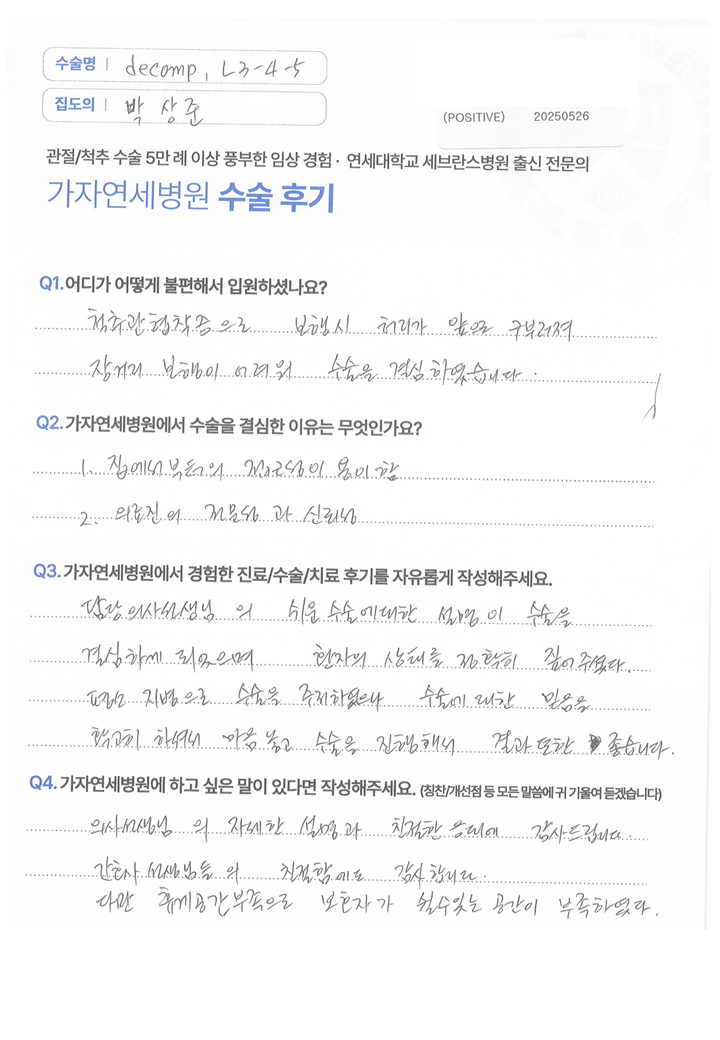 수술명 | decomp, L3-4-5
집도의 | 박 상 준
(POSITIVE) 20250526
관절/척추 수술 5만 례 이상 풍부한 임상 경험 · 연세대학교 세브란스병원 출신 전문의
가자연세병원 수술 후기
Q1.어디가 어떻게 불편해서 입원하셨나요?
척추관협착증으로 보행시 허리가 앞으로 구부러져
장거리 보행이 어려워 수술을 결심하였습니다.
Q2.가자연세병원에서 수술을 결심한 이유는 무엇인가요?
1. 집에서부터의 접근성이 용이함
2. 의료진의 전문성과 신뢰성
Q3.가자연세병원에서 경험한 진료/수술/치료 후기를 자유롭게 작성해주세요.
담당의사선생님의 쉬운 수술에대한 설명이 수술을
결심하게 되었으며 환자의 상태를 정확히 짚어주셨다.
평소 지병으로 수술을 주저하였으나 수술에 대한 믿음을
확고히 하셔서 마음놓고 수술을 진행해서 결과 또한 좋습니다.
Q4.가자연세병원에 하고 싶은 말이 있다면 작성해주세요. (칭찬/개선점 등 모든 말씀에 귀 기울여 듣겠습니다)
의사선생님의 자세한 설명과 친절한 응대에 감사드립니다.
간호사 선생님들의 친절함에도 감사합니다.
다만 휴게공간부족으로 보호자가 쉴수있는 공간이 부족하였다.